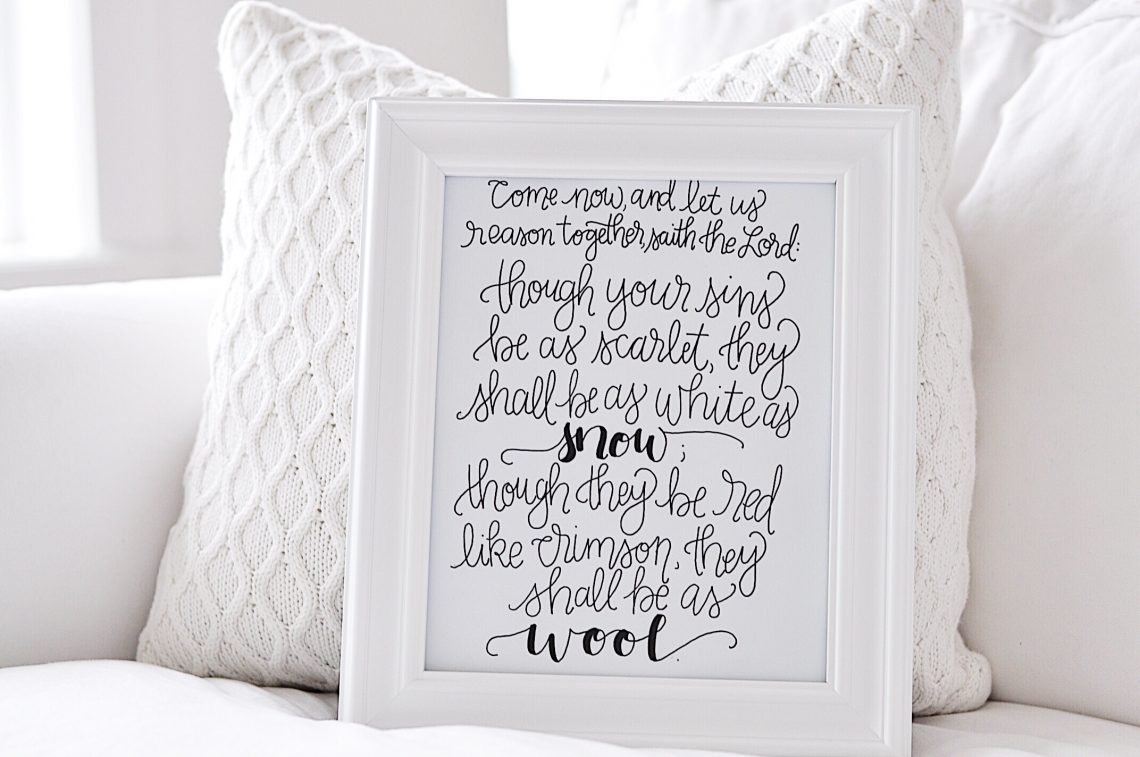 Come now, and let us
reason together, saith the Lord:
though your sins
be as scarlet, they
shall be as white as
snow;
though they be red
like crimson, they
shall be as
wool.